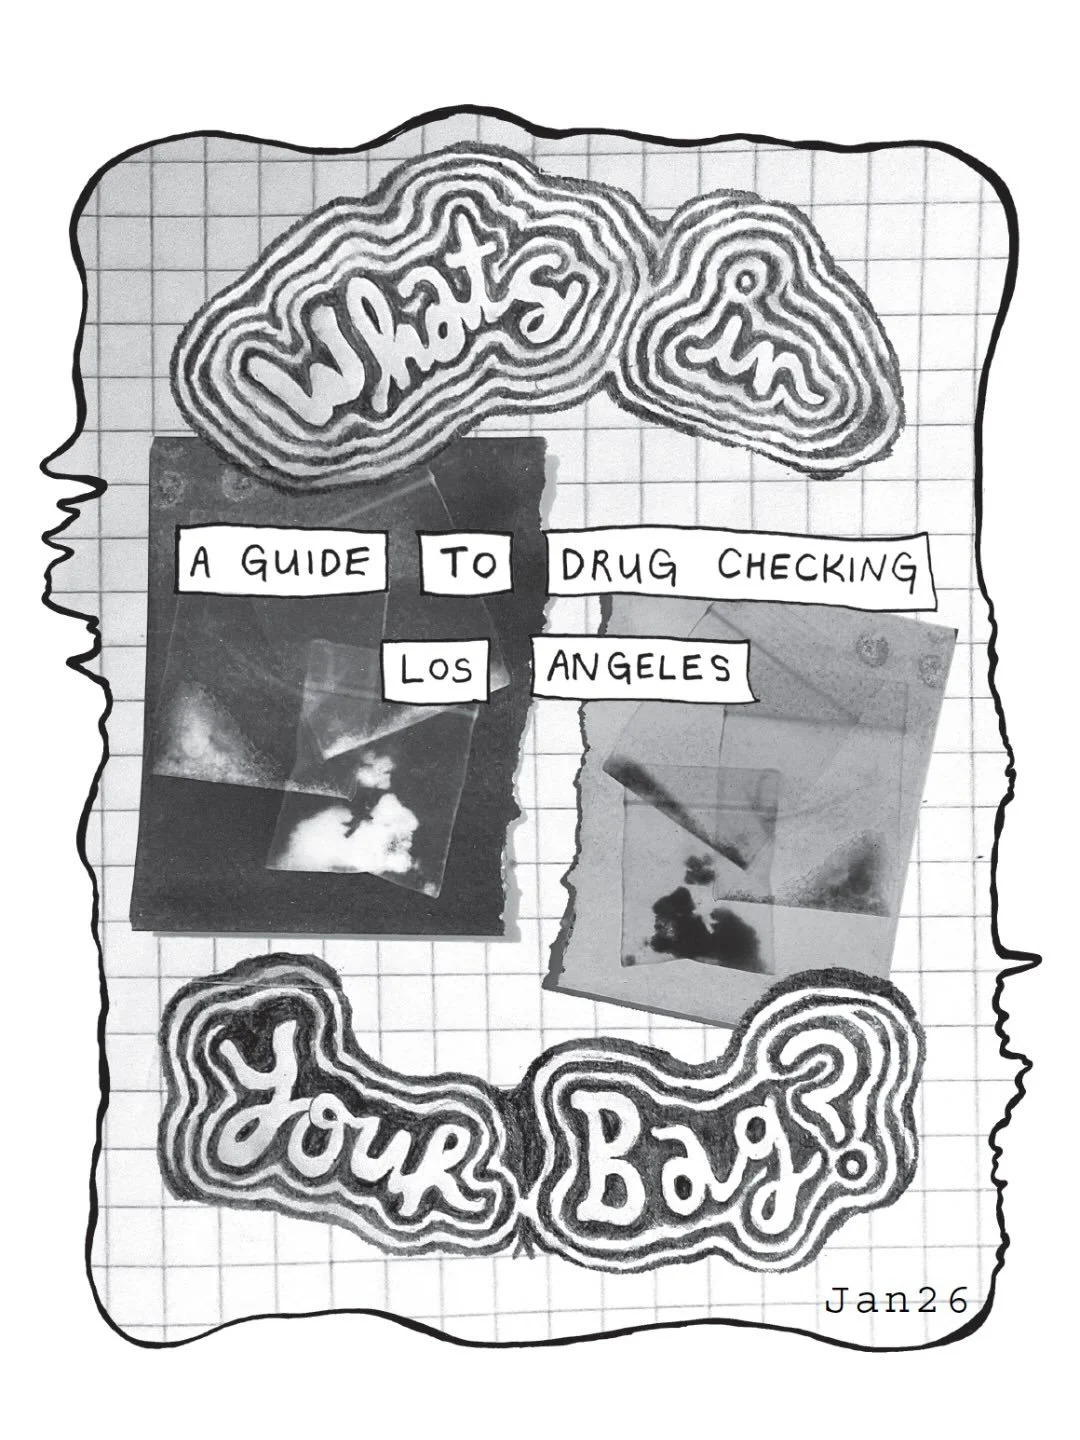 Whats in
A GUIDE TO DRUG CHECKING
LOS ANGELES
Your Bag?
Jan26